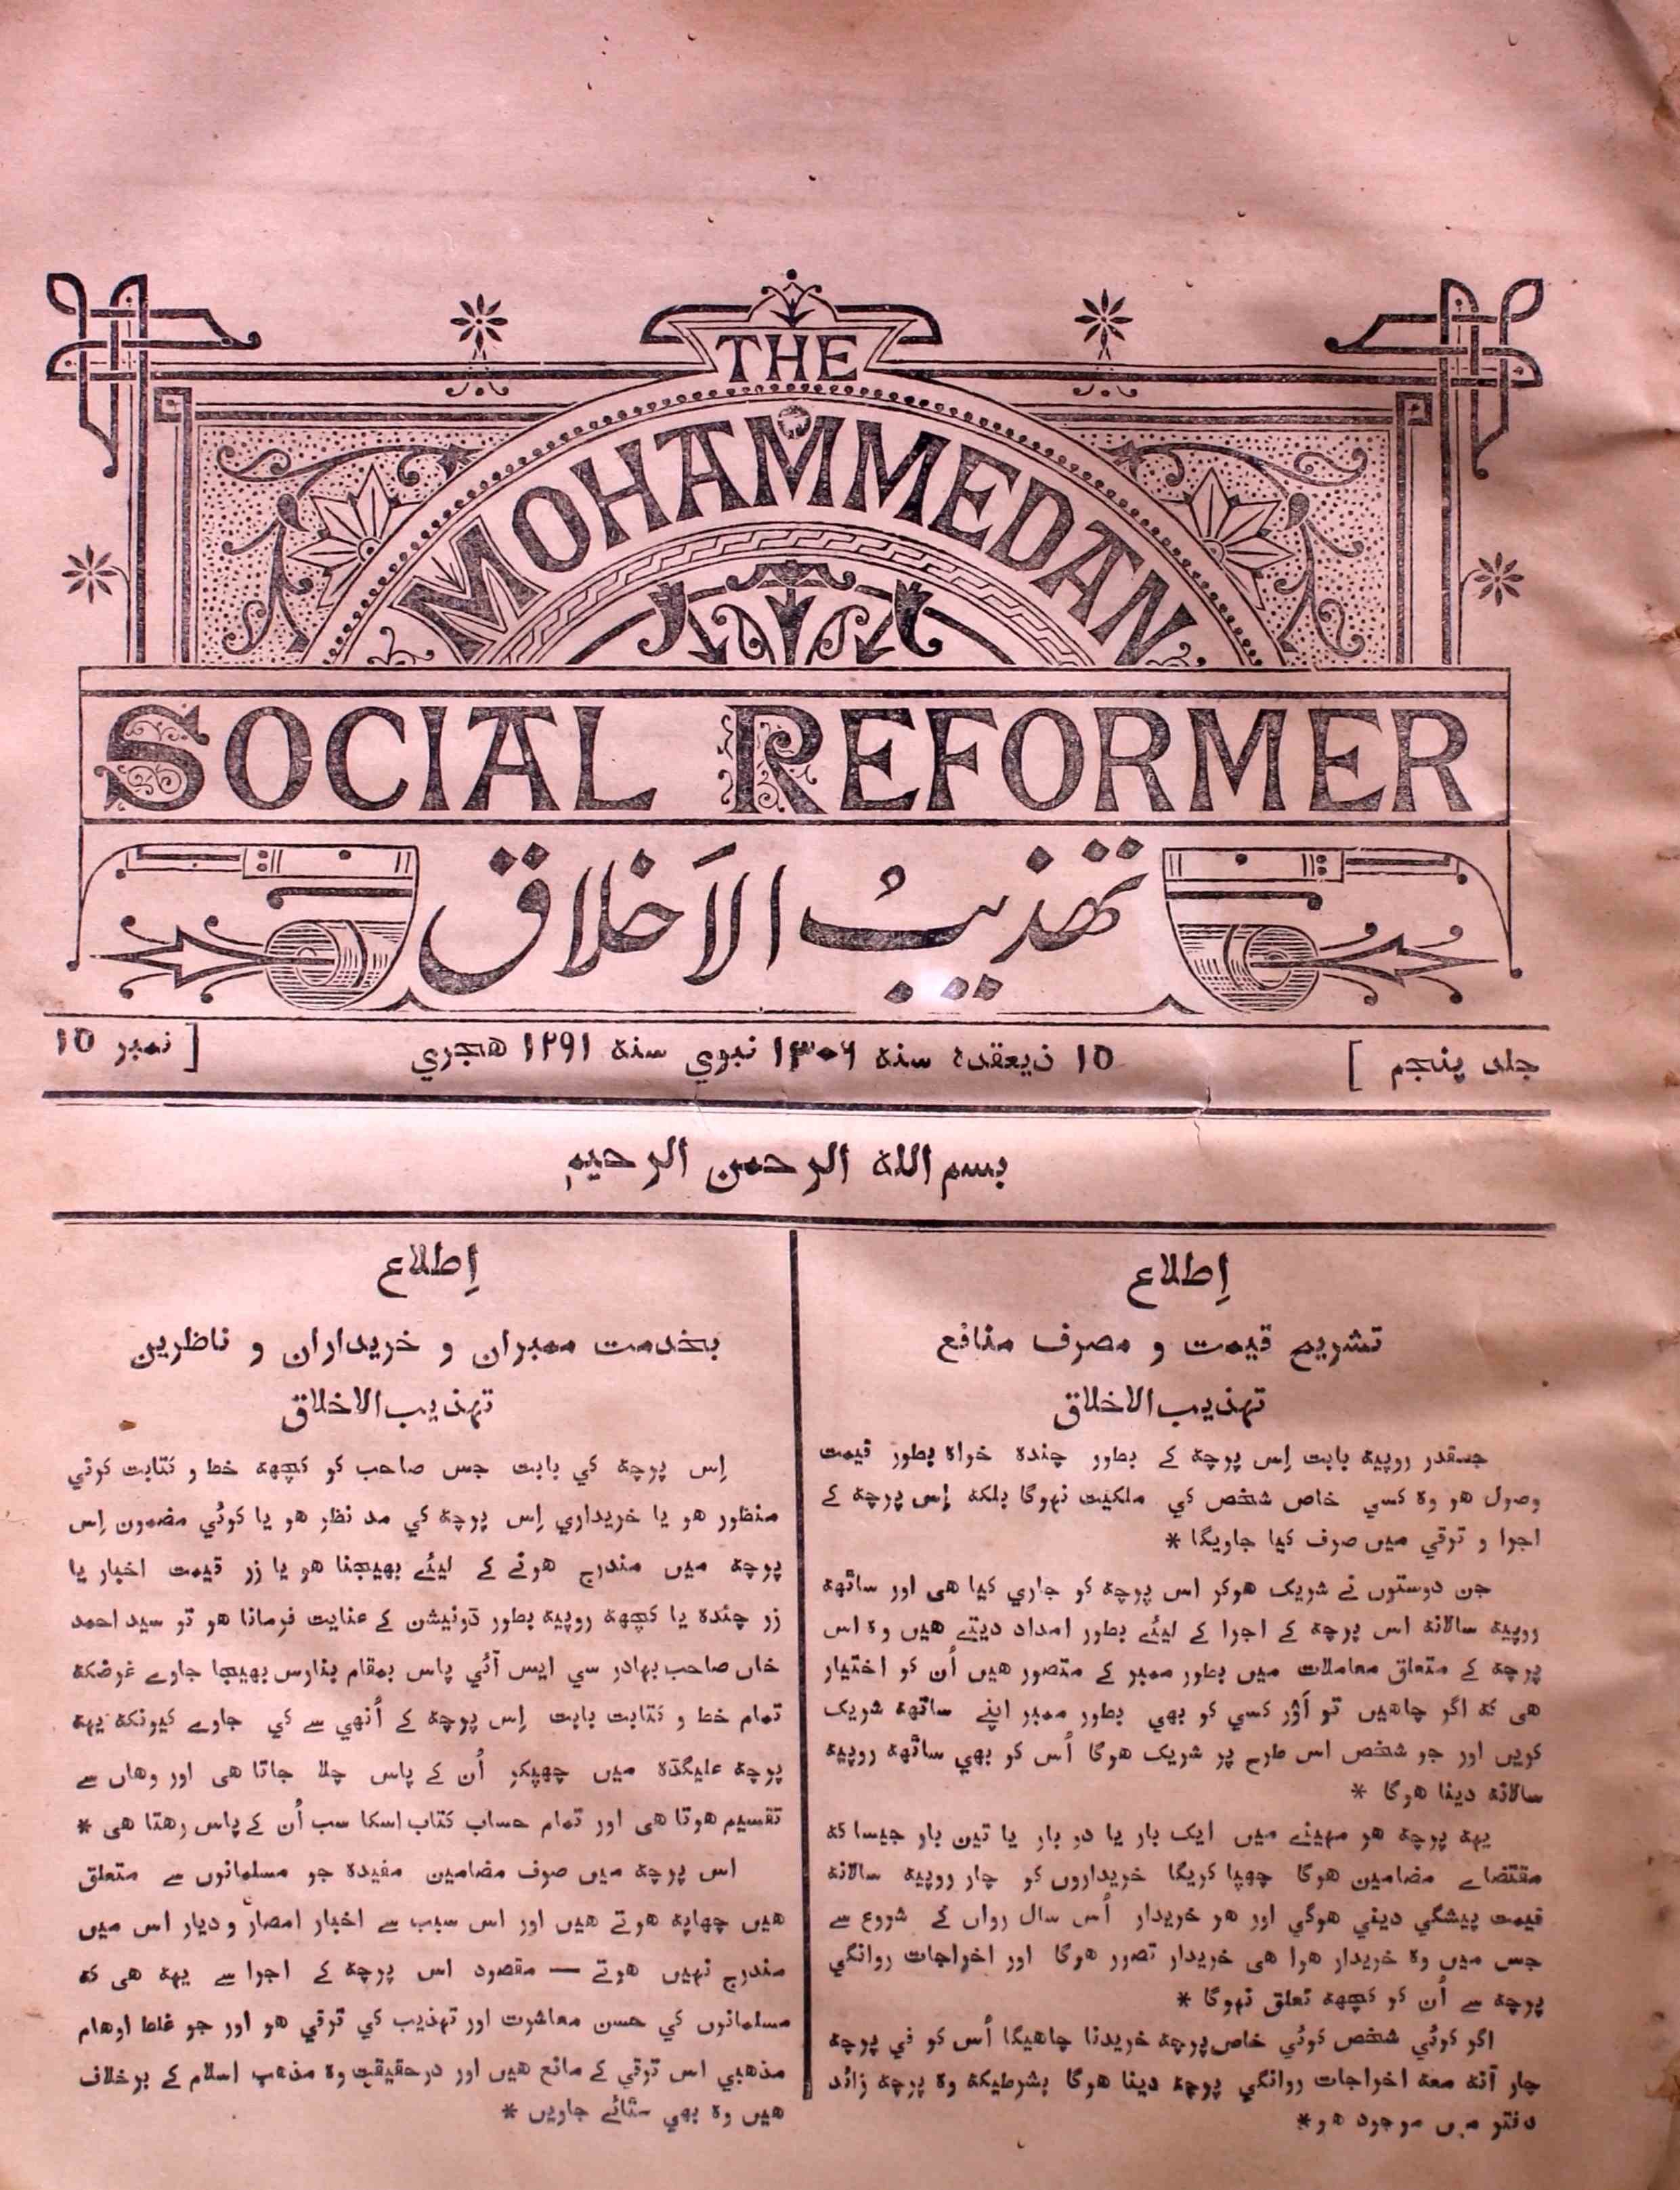 THE
MOHAMMEDAN
SOCIAL REFORMER
تهذیبُ الاَخلاق
جلد پنجم ]
۱۵ ذیعقدہ سنہ ۱۳۰۶ نبوي سنہ ۱۲۹۱ هجري
[ نمبر ۱۵
بسم اللہ الرحمن الرحیم
اِطلاع
تشریح قیمت و مصرف منافع
تہذیب الاخلاق
جسقدر روپیہ بابت اِس پرچہ کے بطور چندہ خواہ بطور قیمت
وصول هو وہ کسي خاص شخص کي ملکیت نہوگا بلکہ اِس پرچہ کے
اجرا و ترقي میں صرف کیا جاویگا *
جن دوستوں نے شریک هوکر اس پرچہ کو جاري کیا هی اور ساٹھہ
روپیہ سالانہ اس پرچہ کے اجرا کے لیئے بطور امداد دیتے هیں وہ اس
پرچہ کے متعلق معاملات میں بطور ممبر کے متصور هیں اُن کو اختیار
هی کہ اگر چاهیں تو اَوْر کسي کو بھي بطور ممبر اپنے ساتھہ شریک
کریں اور جو شخص اس طرح پر شریک هوگا اُس کو بھي ساٹھہ روپیہ
سالانہ دینا هوگا *
یہہ پرچہ هر مہینے میں ایک بار یا دو بار یا تین بار جیسا کہ
مقتضاے مضامین هوگا چھپا کریگا خریداروں کو چار روپیہ سالانہ
قیمت پیشگي دیني هوگي اور هر خریدار اُس سال رواں کے شروع سے
جس میں وہ خریدار هوا هی خریدار تصور هوگا اور اخراجات روانگي
پرچہ سے اُن کو کچھہ تعلق نہوگا *
اگر کوئي شخص کوئي خاص پرچہ خریدنا چاهیگا اُس کو في پرچہ
چار آنہ معہ اخراجات روانگي پرچہ دینا هوگا بشرطیکہ وہ پرچہ زائد
دفتر میں موجود هو *
اِطلاع
بخدمت ممبران و خریداران و ناظرین
تہذیب الاخلاق
اِس پرچہ کي بابت جس صاحب کو کچھہ خط و کتابت کرني
منظور هو یا خریداري اِس پرچہ کي مد نظر هو یا کوئي مضمون اِس
پرچہ میں مندرج هونے کے لیئے بھیجنا هو یا زر قیمت اخبار یا
زر چندہ یا کچھہ روپیہ بطور ڈونیشن کے عنایت فرمانا هو تو سید احمد
خاں صاحب بہادر سي ایس آئي پاس بمقام بنارس بھیجا جاوے غرضکہ
تمام خط و کتابت بابت اِس پرچہ کے اُنھي سے کي جاوے کیونکہ یہہ
پرچہ علیگڈہ میں چھپکر اُن کے پاس چلا جاتا هی اور وهاں سے
تقسیم هوتا هی اور تمام حساب کتاب اسکا سب اُن کے پاس رهتا هی *
اس پرچہ میں صرف مضامین مفیدہ جو مسلمانوں سے متعلق
هیں چھاپہ هوتے هیں اور اس سبب سے اخبار امصار و دیار اس میں
مندرج نہیں هوتے — مقصود اس پرچہ کے اجرا سے یہہ هی کہ
مسلمانوں کي حسن معاشرت اور تہذیب کي ترقي هو اور جو غلط اوهام
مذهبي اس ترقي کے مانع هیں اور درحقیقت وہ مذهب اسلام کے برخلاف
هیں وہ بھي مٹائے جاویں *